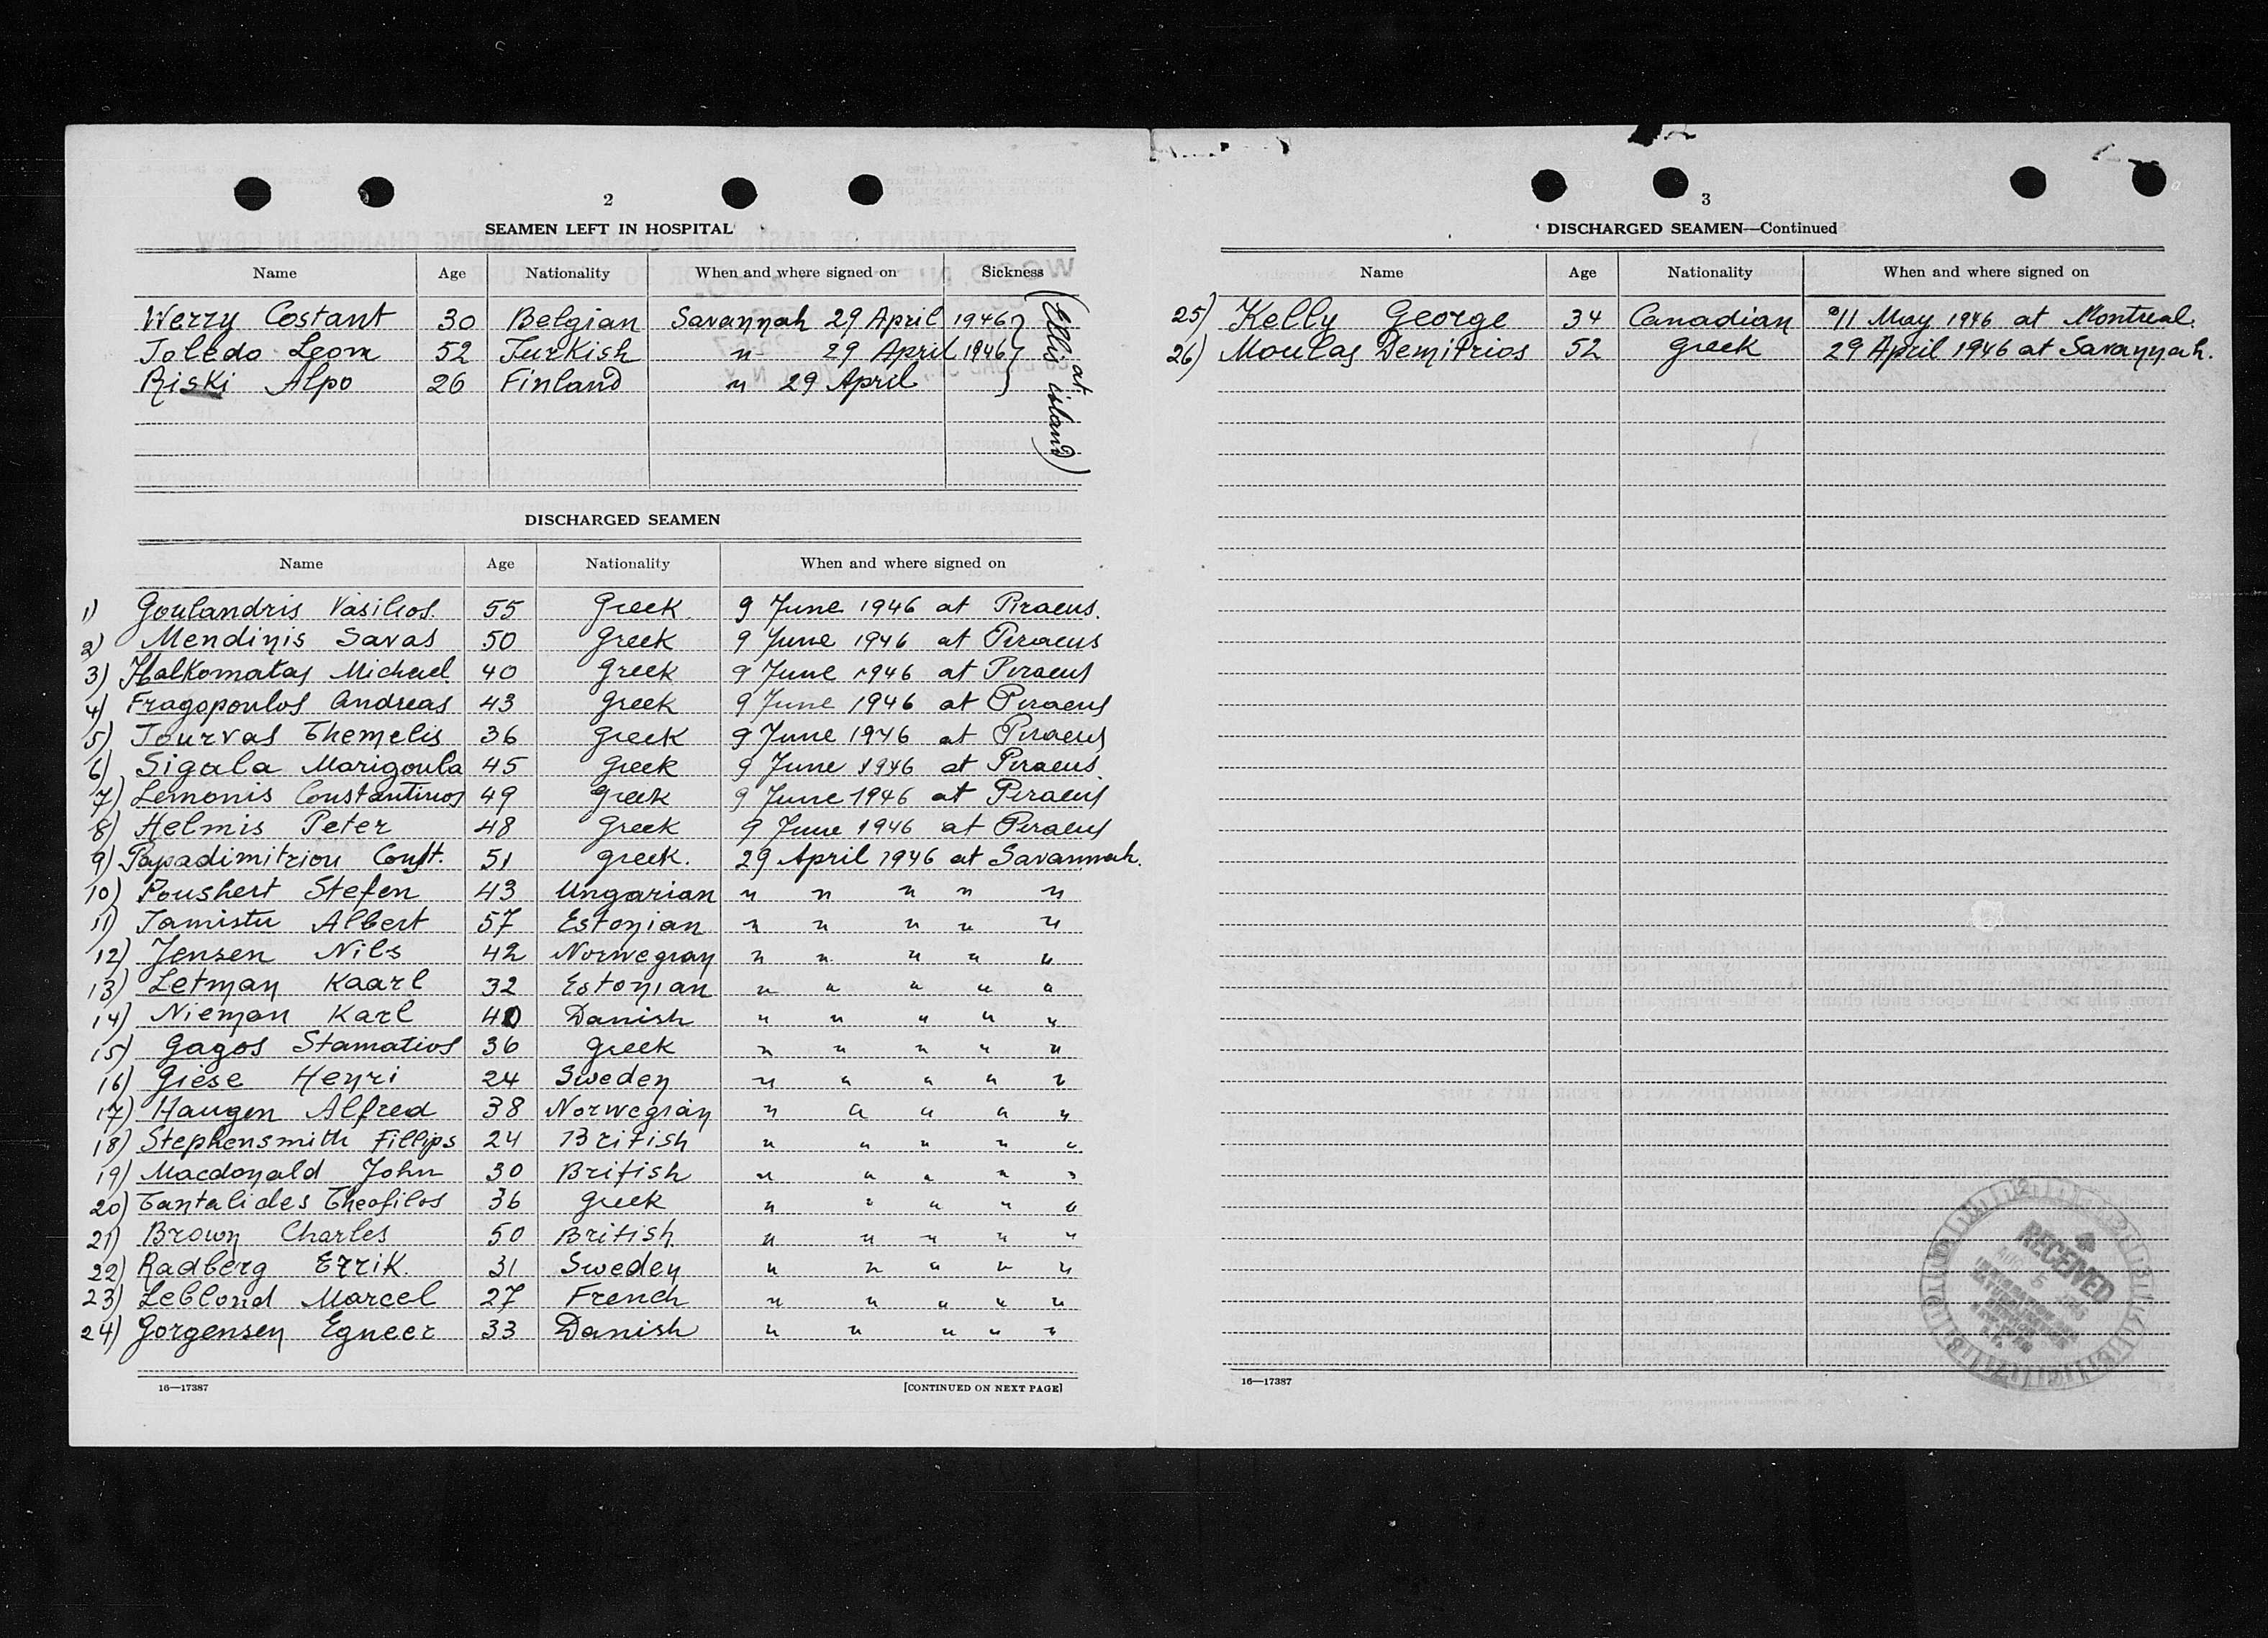 2
SEAMEN LEFT IN HOSPITAL
Name Age Nationality When and where signed on Sickness
Werry Costant 30 Belgian Savannah 29 April 1946
Toledo Leom 52 Turkish " 29 April 1946
Riski Alpo 26 Finland " 29 April
(at Ellis island)
DISCHARGED SEAMEN
Name Age Nationality When and where signed on
1) Goulandris Vasilios. 55 Greek. 9 June 1946 at Piraeus.
2) Mendinis Savas 50 Greek 9 June 1946 at Piraeus
3) Halkomatas Michael 40 Greek 9 June 1946 at Piraeus
4) Fragopoulos Andreas 43 Greek 9 June 1946 at Piraeus
5) Tourvas Themelis 36 Greek 9 June 1946 at Piraeus
6) Sigala Marigoula 45 Greek 9 June 1946 at Piraeus.
7) Lemonis Constantinos 49 Greek 9 June 1946 at Piraeus
8) Helmis Peter 48 Greek 9 June 1946 at Piraeus
9) Papadimitriou Const. 51 Greek. 29 April 1946 at Savannah.
10) Poushert Stefen 43 Ungarian " " " " "
11) Tamistu Albert 57 Estonian " " " " "
12) Jensen Nils 42 Norwegian " " " " "
13) Letman Kaarl 32 Estonian " " " " "
14) Nieman Karl 40 Danish " " " " "
15) Gagos Stamatios 36 Greek " " " " "
16) Giese Henri 24 Sweden " " " " "
17) Haugen Alfred 38 Norwegian " " " " "
18) Stephensmith Fillips 24 British " " " " "
19) Macdonald John 30 British " " " " "
20) Tantalides Theofilos 36 Greek " " " " "
21) Brown Charles 50 British " " " " "
22) Radberg Errik. 31 Sweden " " " " "
23) Leblond Marcel 27 French " " " " "
24) Gorgensen Egneer 33 Danish " " " " "
16—17387 [CONTINUED ON NEXT PAGE]
3
DISCHARGED SEAMEN—Continued
Name Age Nationality When and where signed on
25) Kelly George 34 Canadian 11 May 1946 at Montreal.
26) Moulas Demitrios 52 Greek 29 April 1946 at Savannah.
RECEIVED
AUG 5
16—17387